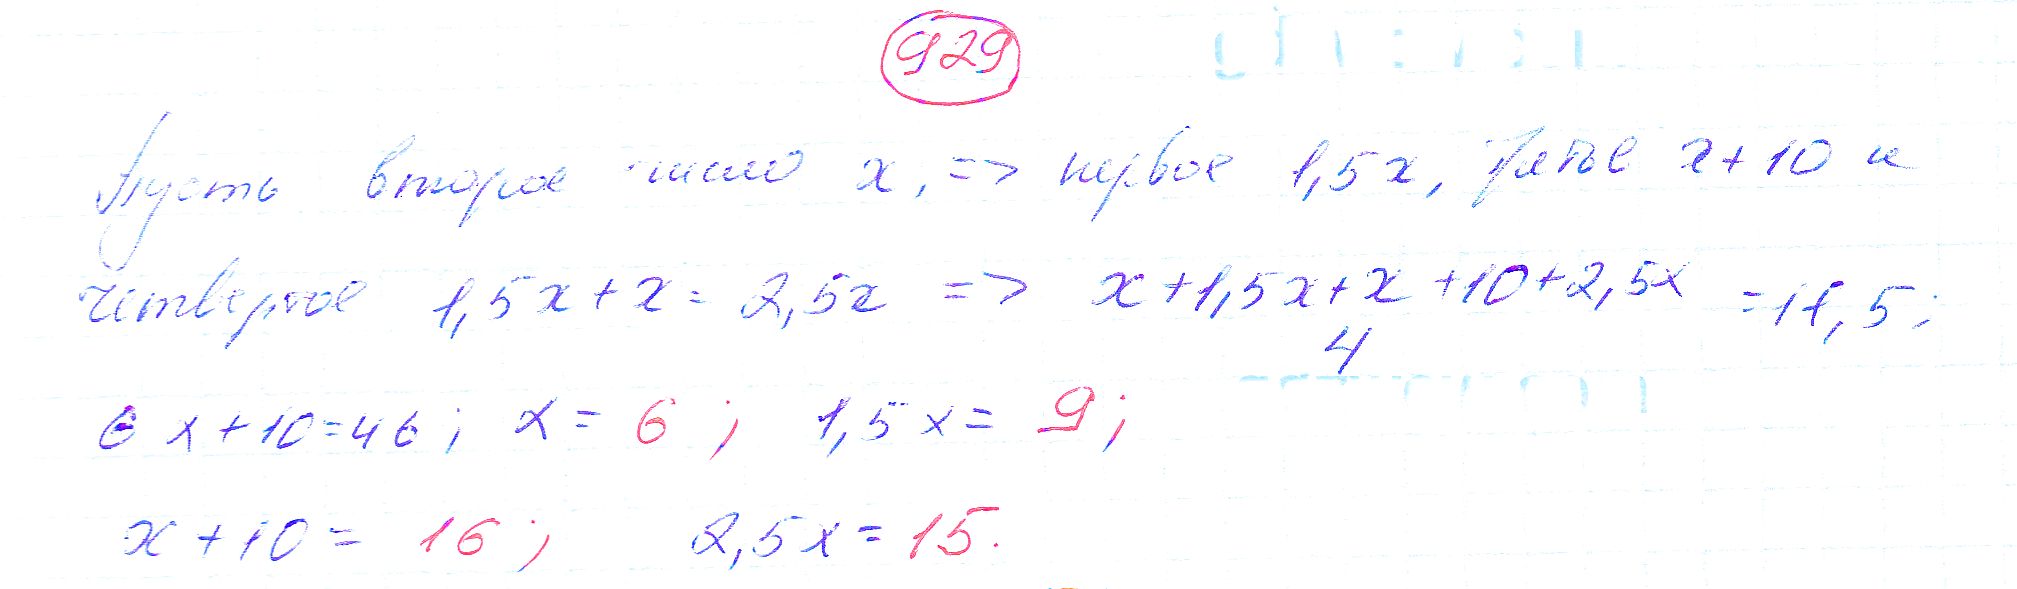 929
Пусть второе число x, => первое 1,5x, третье x+10 и
четвертое 1,5x+x= 2,5x => x+1,5x+x+10+2,5x =11,5;
4
6x+10=46; x= 6; 1,5x= 9;
x+10= 16; 2,5x=15.